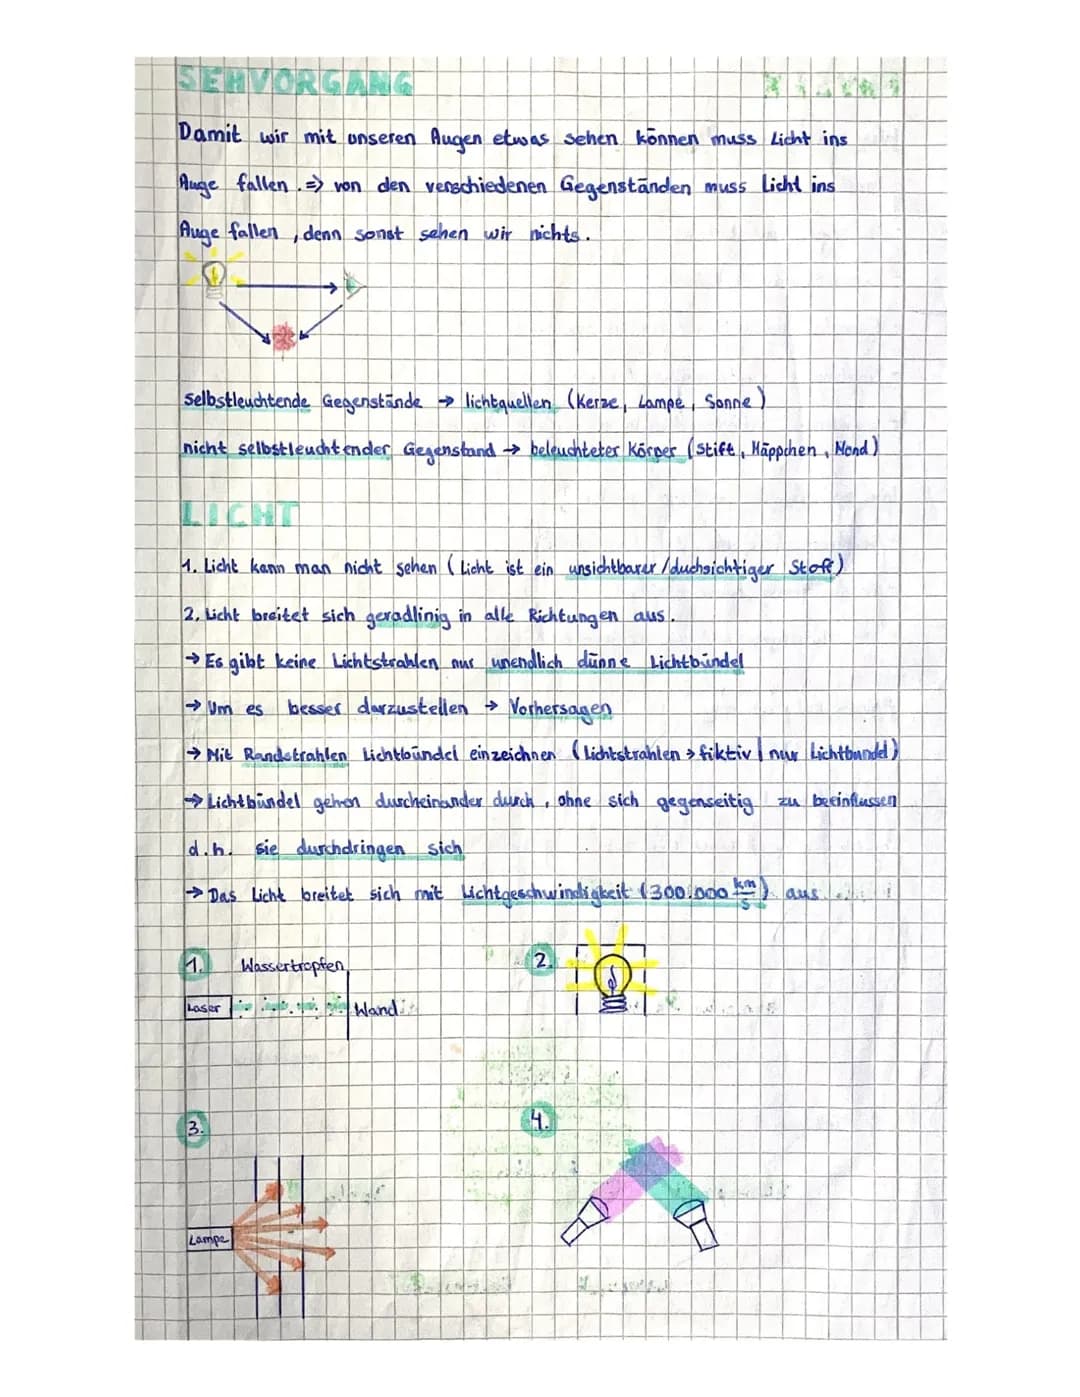 SEHVORGANG
Damit wir mit unseren Augen etwas sehen können muss Licht ins
Auge fallen. => von den verschiedenen Gegenständen muss Licht ins
Auge fallen, denn sonst sehen wir nichts.
Selbstleuchtende Gegenstände → lichtquellen (Kerze, Lampe, Sonne)
nicht selbstleuchtender Gegenstand → beleuchteter Körper (Stift, Mäppchen, Mond)
LICHT
1. Licht kann man nicht sehen (Licht ist ein unsichtbarer/duchsichtiger Stoff)
2. Licht breitet sich geradlinig in alle Richtungen aus.
→ Es gibt keine Lichtstrahlen nur unendlich dünne Lichtbündel
→ Um es besser darzustellen → Vorhersagen
→ Mit Randstrahlen Lichtbündel einzeichnen (Lichtstrahlen → fiktiv | nur Lichtbündel)
→ Lichtbündel gehen durcheinander durch, ohne sich gegenseitig zu beeinflussen
d.h. sie durchdringen sich
→ Das Licht breitet sich mit Lichtgeschwindigkeit (300.000 km/s) aus
1. Wassertropfen 2.
Laser Wand
3. 4.
Lampe